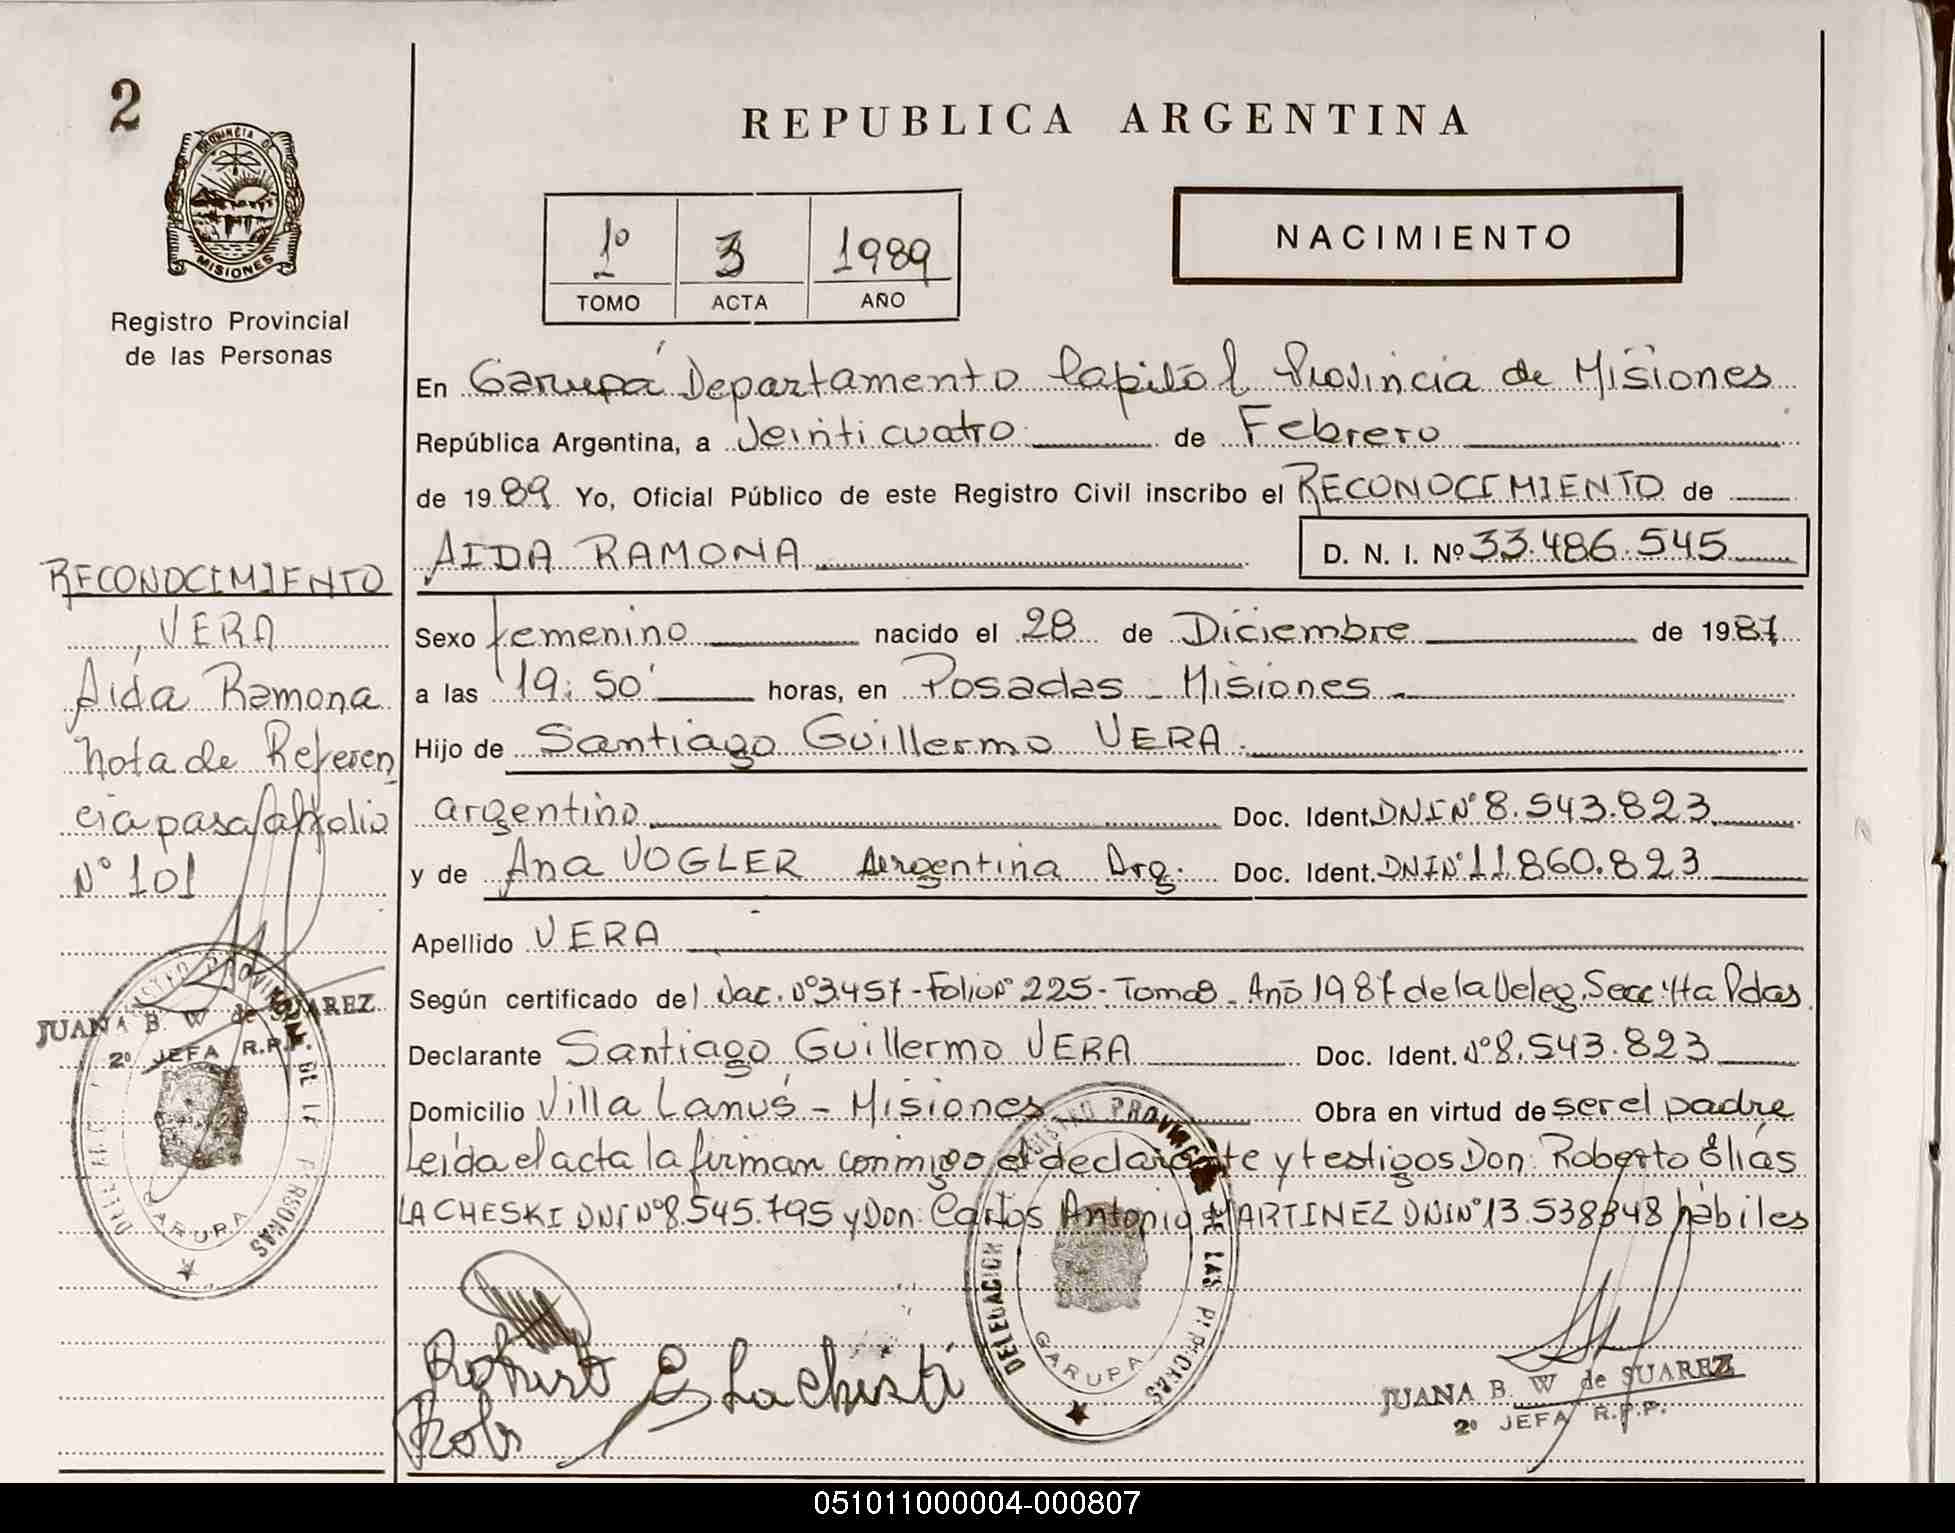 2
PROVINCIA DE
MISIONES
Registro Provincial
de las Personas
REPUBLICA ARGENTINA
1º 3 1989
TOMO ACTA AÑO
NACIMIENTO
En Garupá Departamento Capital Provincia de Misiones
República Argentina, a Veinticuatro de Febrero
de 1989. Yo, Oficial Público de este Registro Civil inscribo el RECONOCIMIENTO de
AIDA RAMONA
D. N. I. Nº 33.486.545
Sexo femenino nacido el 28 de Diciembre de 1987
a las 19:50 horas, en Posadas - Misiones
Hijo de Santiago Guillermo VERA
argentino Doc. Ident. DNI Nº 8.543.823
y de Ana VOGLER Argentina Arg. Doc. Ident. DNI Nº 11.860.823
Apellido VERA
Según certificado del Nac. Nº 3457 - Folio Nº 225 - Tomo 8 - Año 1987 de la Deleg. Secc. 4ta Pdas
Declarante Santiago Guillermo VERA Doc. Ident. Nº 8.543.823
Domicilio Villa Lanús - Misiones Obra en virtud de ser el padre
Leída el acta la firman conmigo el declarante y testigos Don: Roberto Elías
LACHESKI DNI Nº 8.545.795 y Don: Carlos Antonio MARTINEZ DNI Nº 13.538848 hábiles
RECONOCIMIENTO
VERA
Aida Ramona
Nota de Referen
cia pasa al folio
Nº 101
JUANA B. W de SUAREZ
2º JEFA R.P.P.
GARUPA
DELEGACION
GARUPA
JUANA B. W de SUAREZ
2º JEFA R.P.P.
051011000004-000807